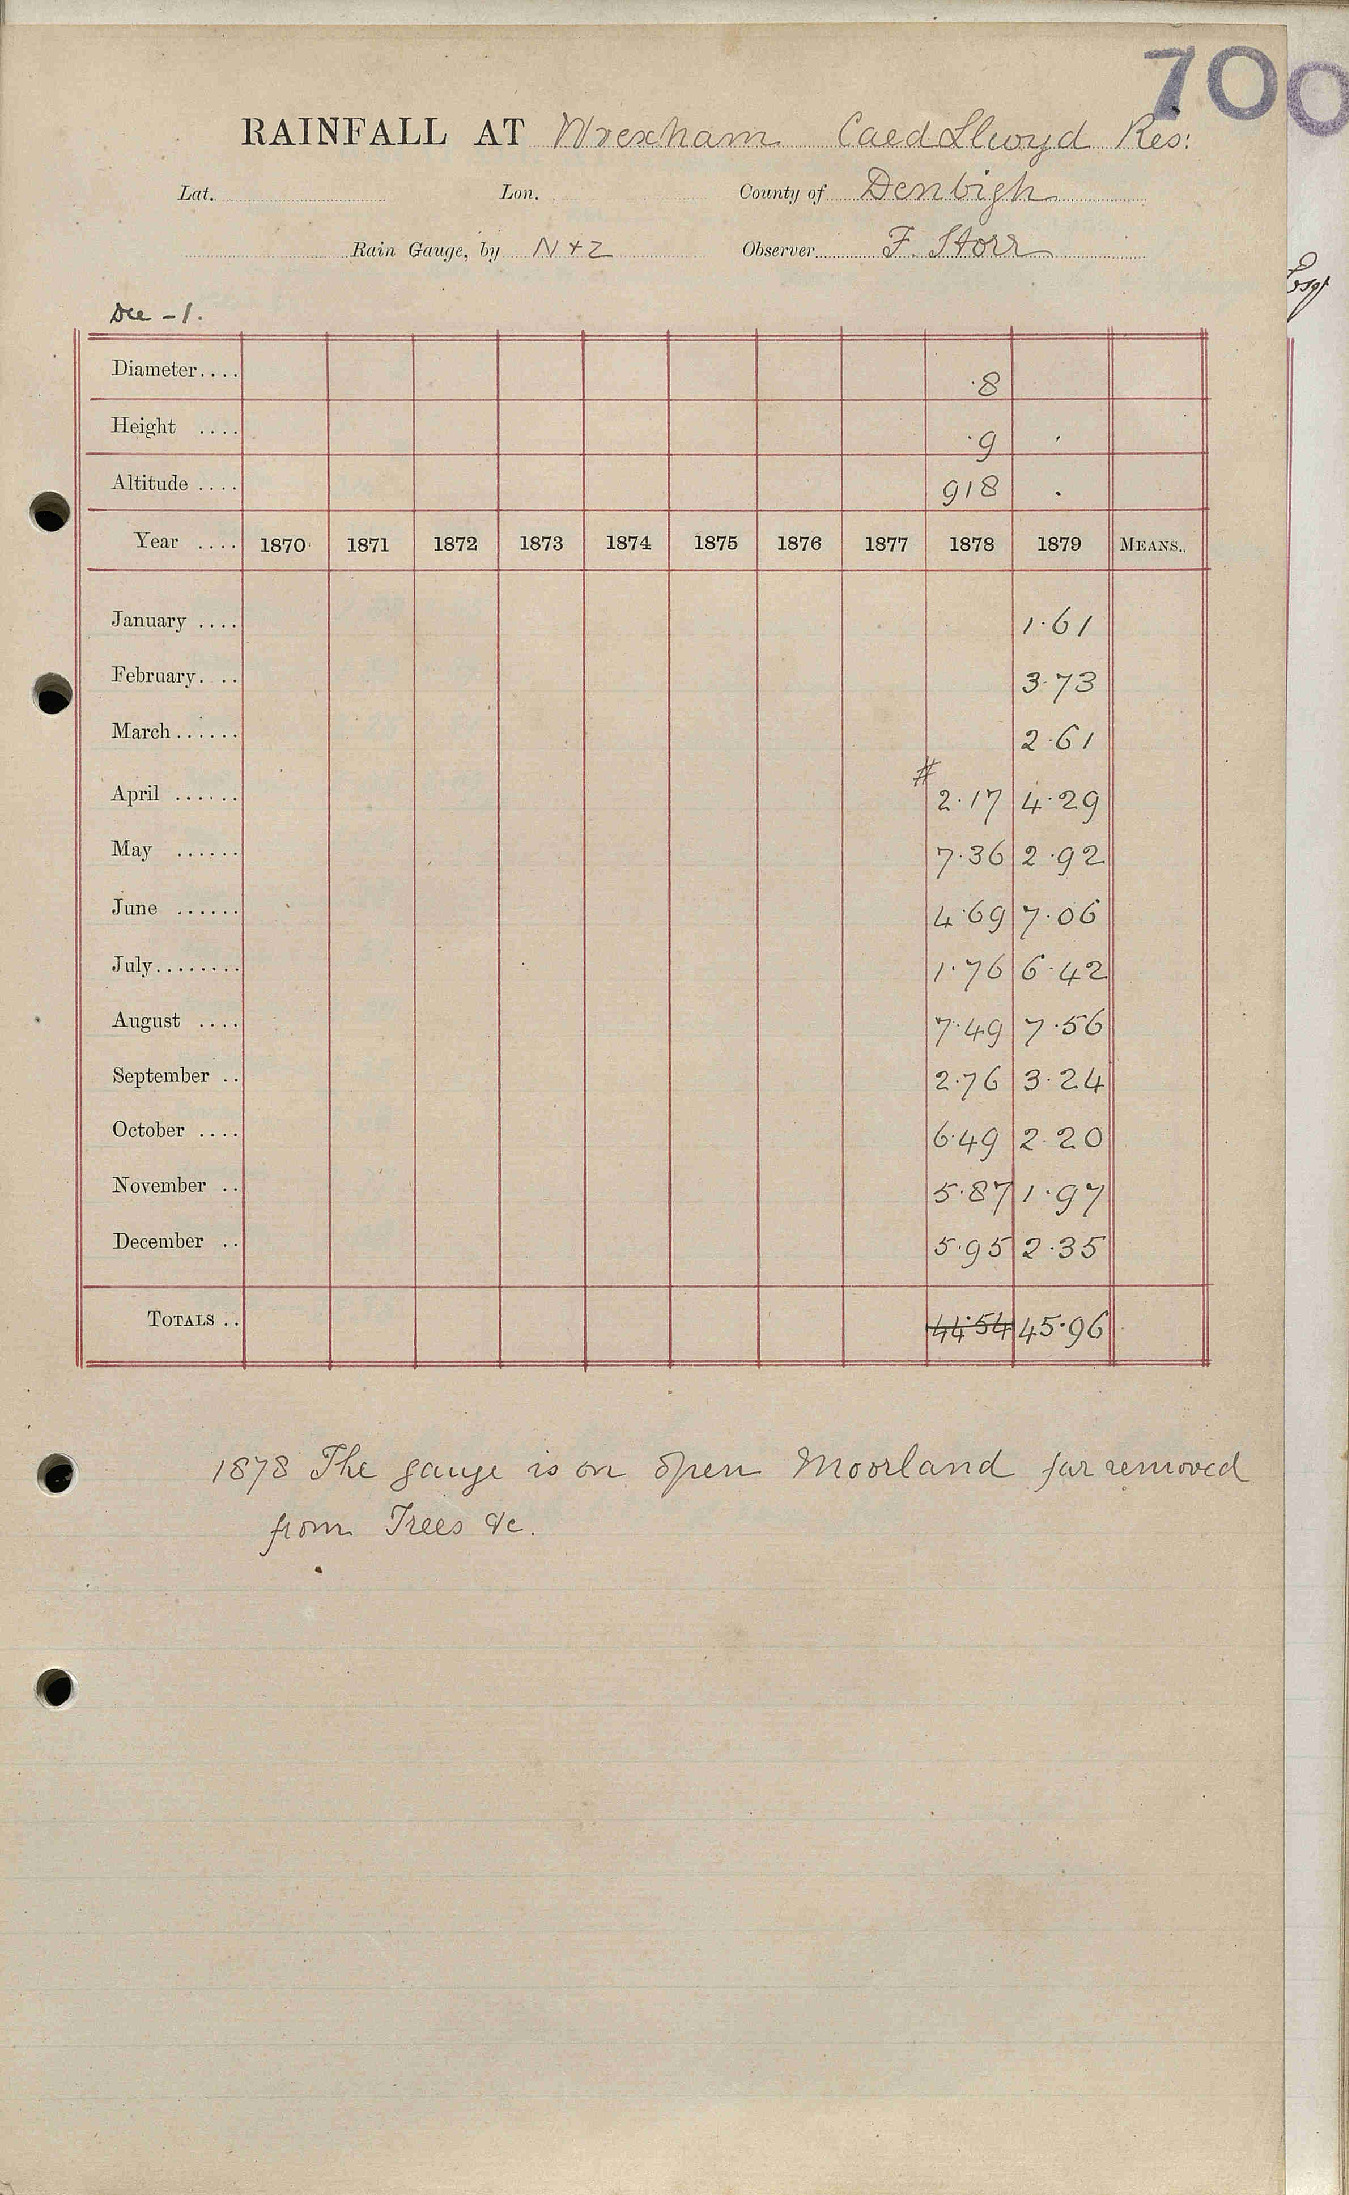 700
RAINFALL AT Wrexham Caed Llwyd Res:
Lat. Lon. County of Denbigh
Rain Gauge, by N + Z Observer F. Storr
Esq
Dee - 1.
Diameter.... ·8
Height .... ·9 ·
Altitude .... 918 .
Year .... 1870 1871 1872 1873 1874 1875 1876 1877 1878 1879 MEANS..
January .... 1·61
February. .. 3·73
March...... 2·61
#
April ...... 2·17 4·29
May ...... 7·36 2·92
June ...... 4·69 7·06
July........ 1·76 6·42
August .... 7·49 7·56
September .. 2·76 3·24
October .... 6·49 2·20
November .. 5·87 1·97
December .. 5·95 2·35
TOTALS .. 44·54 45·96
1878 The gauge is on open Moorland far removed
from Trees &c.